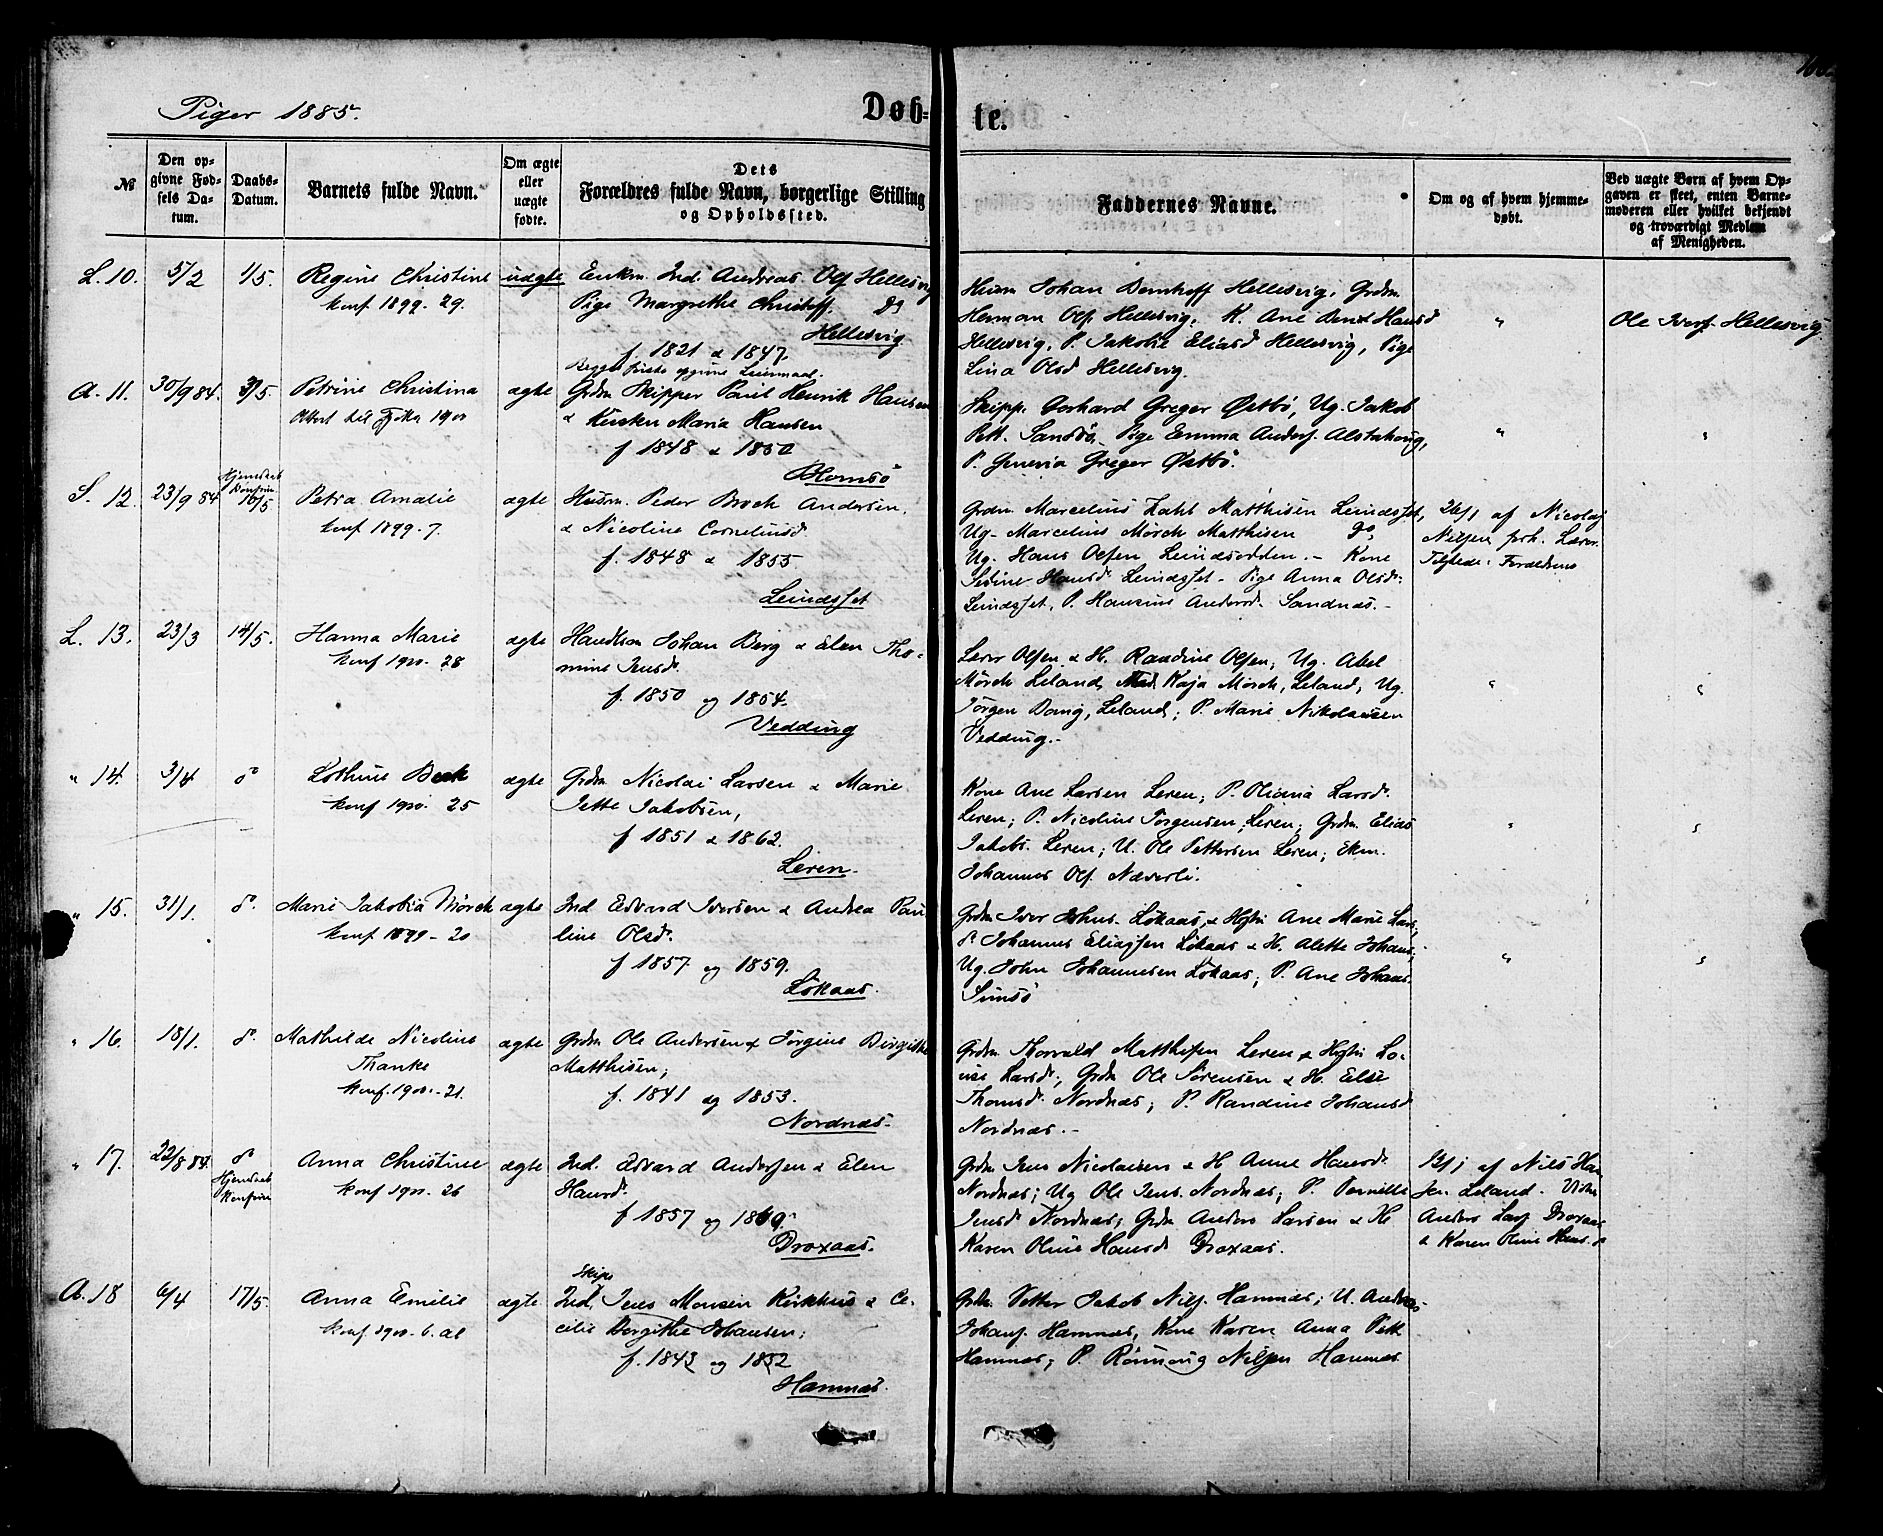 Piger 1885.
Døb=
te.
№
Den op=
givne Fød=
sels Da=
tum.
Daabs=
Datum.
Barnets fulde Navn.
Om ægte
eller
uægte
fødte.
Dets
Forældres fulde Navn, borgerlige Stilling
og Opholdssted.
Faddernes Navne.
Om og af hvem hjemme=
døbt.
Ved uægte Børn af hvem Op=
gaven er skeet, enten Barne=
moderen eller hvilket bekjendt
og troværdigt Medlem
af Menigheden.
L. 10. 5/2 1/5. Regine Christine uægte Enkm. Ind. Andreas Olss Hellesvig
konf 1899. 29. Pige Margrethe Christoff. do
Hellesvig
f. 1821 & 1847.
Begges første opgivne Leiermaal.
Huusm Johan Bernhoff Hellesvig, Grdm
Herman Olss. Hellesvig, K. Ane Hansd
Hellesvig, P. Jakobie Eliasd Hellesvig, Pige
Lina Olsd Hellesvig.
"
Ole Iverss. Hellesvig
A. 11. 30/9 84. 3/5. Petrine Christina ægte Grdm Skipper Paul Henrik Hansen
1900 & Kirsten Maria Hansen
f 1848 & 1850
Blomsø
Skipp. Gerhard Greger Østbø, Ug. Jakob
Pett. Sandsø, Pige Emma Anders. Alstahoug,
P. Greger Østbø.
"
"
S. 12. 23/9 84 Hjemdøbt
10/5 Petra Amalie ægte Husm. Peder Brock Andersen,
konf 1899. 7. & Nicoline Corneliusd.
f. 1848 & 1855
Leindsset
Grdm Marcelius Zahl Matthisen Leindsset,
Ug. Marcelius Mørch Matthisen do
Ug. Hans Olsen Leindsodden. - Kone
Sedine Hansd. Leindsset - Pige Anna Olsd.
Leindsset, P. Hansine Andersd. Sandnæs. -
26/1 af Nicolaj
Nilssen forh. Lærer.
Tilstede: Forældrene
L. 13. 23/3 14/5. Hanna Marie ægte Handlsm Johan Berg & Elen Tho=
konf 1900. 28 mine Jensd.
f. 1850 og 1854.
Vedding
Lærer Olsen & H. Randine Olsen, Ug. Abel
Mørch Leland, Mad. Kaja Mørch, Leland, Ug.
Jørgen Dang, Leland; P. Marie Nikolaisen
Vedding. -
"
"
" 14. 3/4 do Lothine Beck ægte Grdm Nicolai Larsen & Marie
konf 1900. 25 Jette Jakobsen,
f 1851 & 1862.
Leren.
Kone Ane Larsen Leren; P. Oliana Larsd.
Leren; P. Nicoline Jørgensen, Leren; Grdm. Elias
Jakobs. Leren; U. Ole Pettersen Leren; Ekm.
Johannes Ols. Næverli.
"
"
" 15. 31/1. do. Marie Jakobia Mørch ægte Ind Edvard Iversen & Andrea Pau
konf 1899 - 20 line Olsd.
f 1857 og 1859.
Løkaas.
Grdm Iver Johns. Løkaas, & Hstr Ane Marie Lars
do Johannes Eliassen Løkaas & H. Alette Johans;
Ug. John Johannesen Løkaas; P. Ane Johans.
Simsø
"
"
" 16. 18/1. do. Mathilde Nicoline ægte Grdm Ole Andersen & Jørgine Birgitte
Thanke Matthisen;
konf. 1900. - 21. f. 1841 og 1853.
Nordnæs -
Grdm Thorvald Matthisen Leren & Hstr Lo=
uise Larsd; Grdm Ole Sørensen & H. Else
Thomsd. Nordnæs; P. Randine Johansd
Nordnæs. -
" 17. 22/8 84. do Anna Christine ægte Ind. Edvard Anderssen & Elen
Hjemdøbt konf 1900. 26 Hansd.
f 1857 og 1860.
Droxaas.
Grdm Jens Nicolaisen & H Anne Hansd.
Nordnæs; Ug Ole Jens. Nordnæs; P. Pernille
Jensd Nordnæs; Grdm Anders Larsen & H
Karen Oline Hansd Droxaas.
af Nils Han
sen Leland.
Anders Lars Droxaas
& Karen Oline Hans. do
A. 18 6/4 17/5. Anna Emilie ægte Skips
Ind. Jens Monsen Kirkhus & Ce=
konf 1900. 6. al cilie Borgithe Johansen;
f. 1843 og 1852
Hamnæs.
Grdm. Petter Jakob Nils. Hamnæs; U. Andreas
Johans. Hamnæs, Kone Karen Anna Pett.
Hamnæs; P. Rønnaug Nilssen Hamnæs.